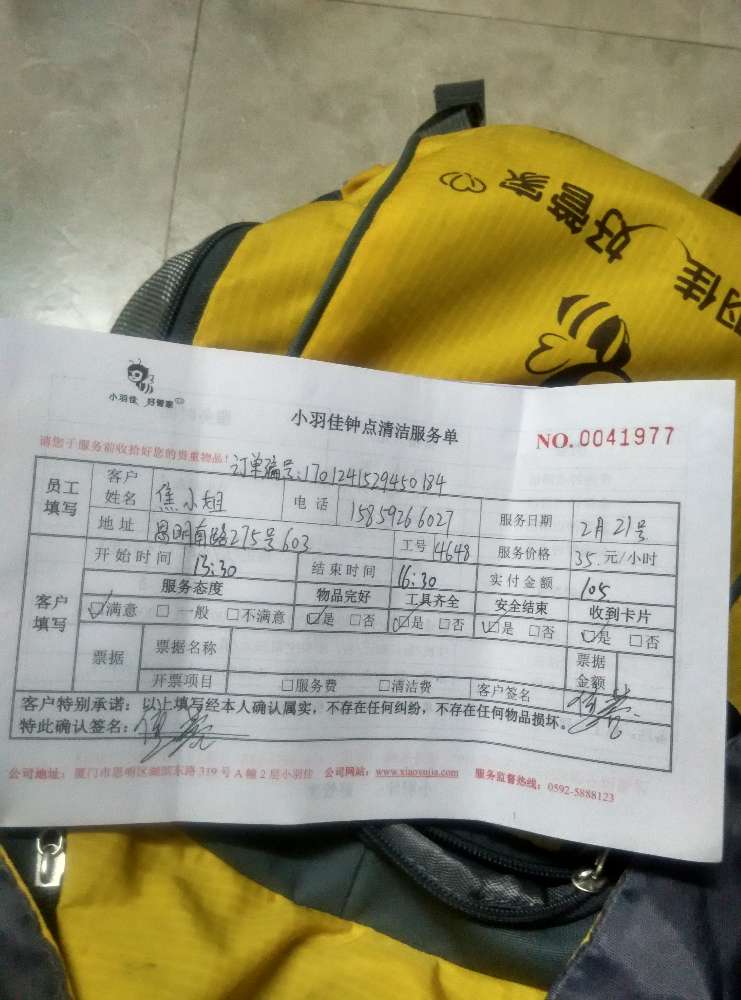 好管家
羽佳 好管家
小羽佳 好管家
小羽佳钟点清洁服务单
NO.0041977
请您于服务前收拾好您的贵重物品!
订单编号:170124152945 0184
员工填写 客户姓名 焦小姐 电话 15859266027 服务日期 2月21号
地址 思明南路275号603 工号 4648 服务价格 35.元/小时
客户填写 开始时间 13:30 结束时间 16:30 实付金额 105
服务态度 物品完好 工具齐全 安全结束 收到卡片
☑满意 □一般 □不满意 ☑是 □否 ☑是 □否 ☑是 □否 ☑是 □否
票据 票据名称 票据金额
开票项目 □服务费 □清洁费 客户签名
客户特别承诺:以上填写经本人确认属实,不存在任何纠纷,不存在任何物品损坏。
特此确认签名:
公司地址:厦门市思明区湖滨东路319号A幢2层小羽佳 公司网站:www.xiaoyujia.com 服务监督热线:0592-5888123